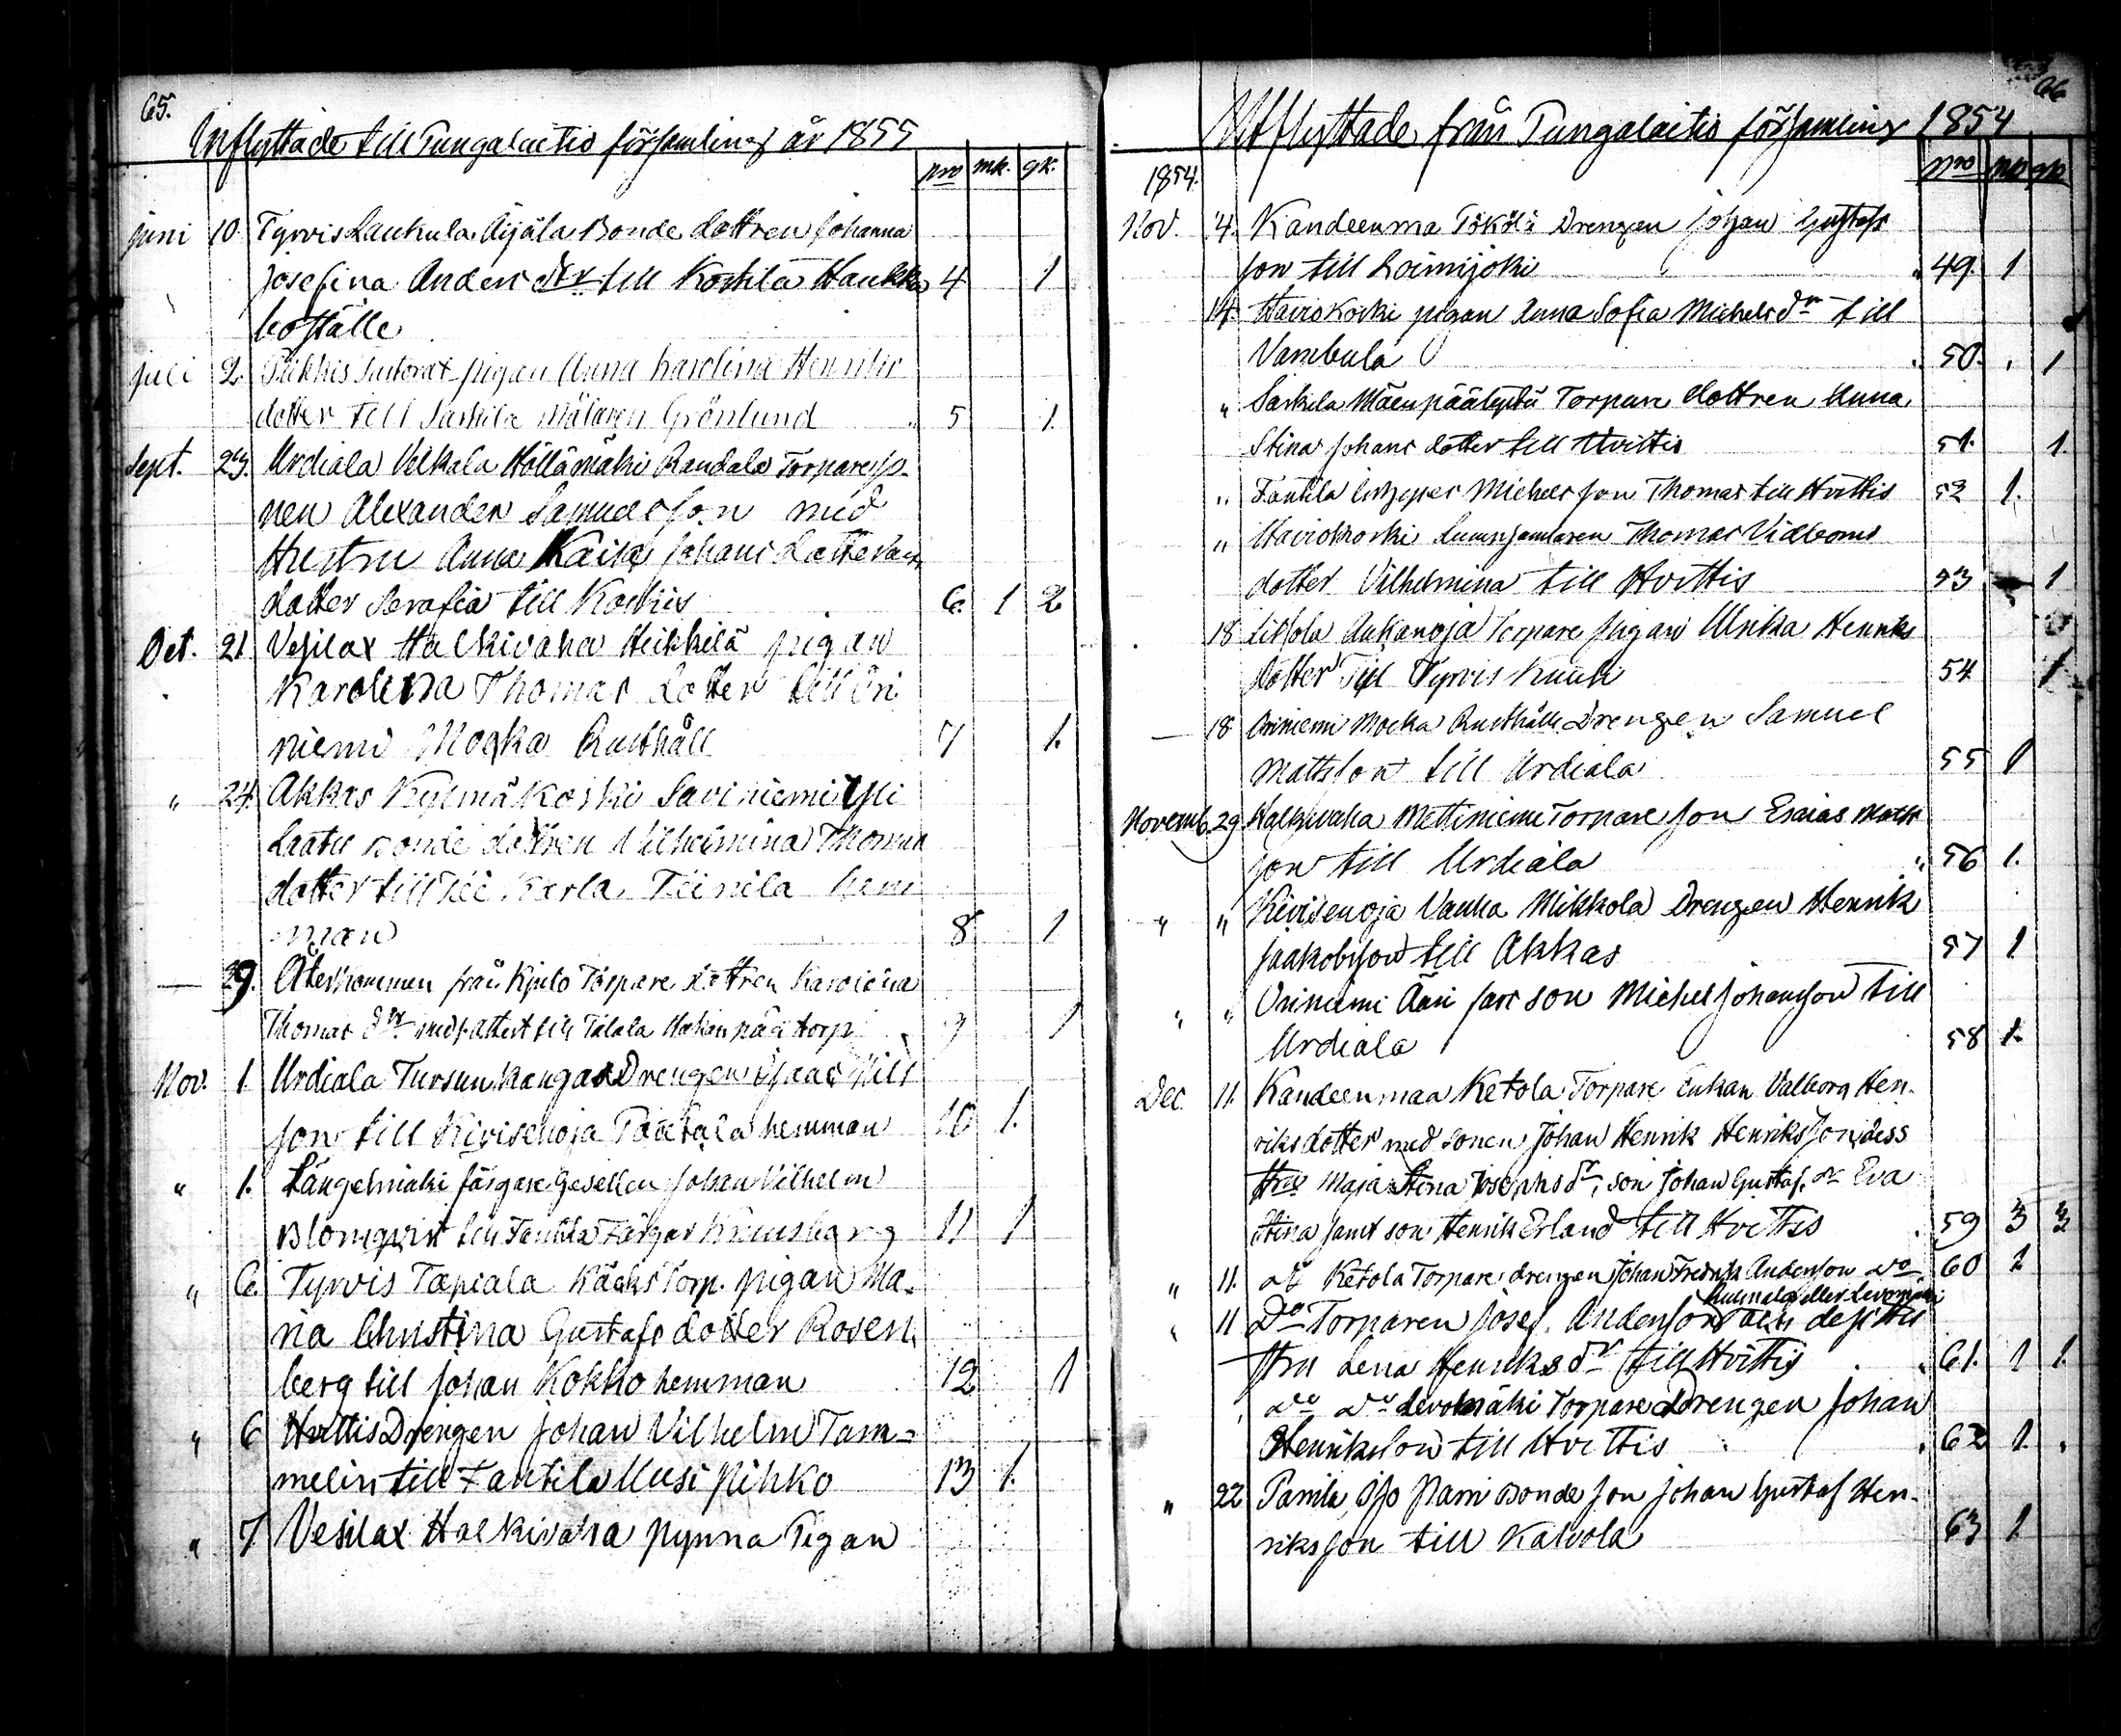 65.
Inflyttade till Pungalaitio församling år 1855
nro mk. qk.
juni 10. Tyrvis Laukula Äijälä Bonde dottren Johanna
Josefina Anders dtr till Kostila Haukka 4 1
boställe
juli 2. Pikkis pigan Anna Karolina Henriks
dotter till Sarkila Målaren Grönlund 5 1.
Sept. 23. Urdiala Velkala Höllämäki Raudala Torpare
nen Alexander Samuelsson med
Hustru Anna Kaisa Johans dotter samt
dotter Serafia till Koskis 6. 1 2
Oct. 21 Vesilax Halkivaha Heikkilä pigan
Karolina Thomas dotter till Ori
niemi Mocka Rusthåll 7 1.
" 24. Akkas Kylmäkoski Saviniemi Yli
Laatu Bonde dottren Vilhelmina Thomas
dotter till Karla Teinila hem
man 8 1
— 29. Återkommen från Kjulo Torpare dottren Karolina
Thomas dtr med attest till Talala torp 9 1
Nov. 1. Urdiala Tursunkangas Drengen Isaac Nils
son till Kivisenoja Päätalo hemman 10 1.
" 1. Längelmäki färgare Gesellen Johan Vilhelm
Blomqvist till Fantila Färgar 11 1
" 6. Tyrvis Tapiala Torp. pigan Ma-
ria Christina Gustafs dotter Rosen
berg till Johan Kokko hemman 12 1
" 6 Hvittis Drengen Johan Vilhelm Tam=
melin till Fantila Uusi Pihko 13 1.
" 7 Vesilax Halkivaha pynnä Pigan
66
Utflyttade från Pungalaitio församling 1854
1854. Nro mk qk
Nov. 4. Kandeenma Tökölä Drengen Johan Gustafs
son till Loimijoki 49. 1
14. Haviokoski pigan Anna Sofia Michels dr till
Vambula 50. 1
" Sarkila Mäenpää Torpare dottren Anna
Stina Johans dotter till Hvittis 51. 1.
" Fantila Michels son Thomas till Hvittis 52 1.
" Haviokoski Thomas Vidboms
dotter Vilhelmina till Hvittis 53 1
18 Liksola Aukanoja Torpare pigan Ulrika Henriks
dotter Till Tyrvis 54. 1
— 18 Oriniemi Mocka Rusthålls Drengen Samuel
Mattsson till Urdiala 55 1
Novemb. 29 Halkivaha Mettiniemi Torpare son Esaias Matts
son till Urdiala 56 1.
" " Kivisenoja Vanha Mikkola Drengen Henrik
Jaakobsson till Akkas 57 1
" " Oriniemi Ääri son Michel Johansson till
Urdiala 58 1.
Dec. 11. Kandeenmaa Ketola Torpare Enkan Valborg Hen-
riksdotter med sonen Johan Henrik Henriksson, dess
Hru Maja Stina Josephs dr, son Johan Gustaf, dr Eva
Stina samt son Henrik Erland till Hvittis 59 3 3
" 11. do Ketola Torpare drengen Johan Fredrik Andersson do 60 1
" 11 Do Torparen Josef Andersson eller
Hru Lena Henriks dr till Hvittis 61. 1 1.
do do Levomäki Torpare Drengen Johan
Henriksson till Hvittis 62 1.
" 22 Panila Iso Pani Bonde son Johan Gustaf Hen-
riksson till Kalvola 63 1